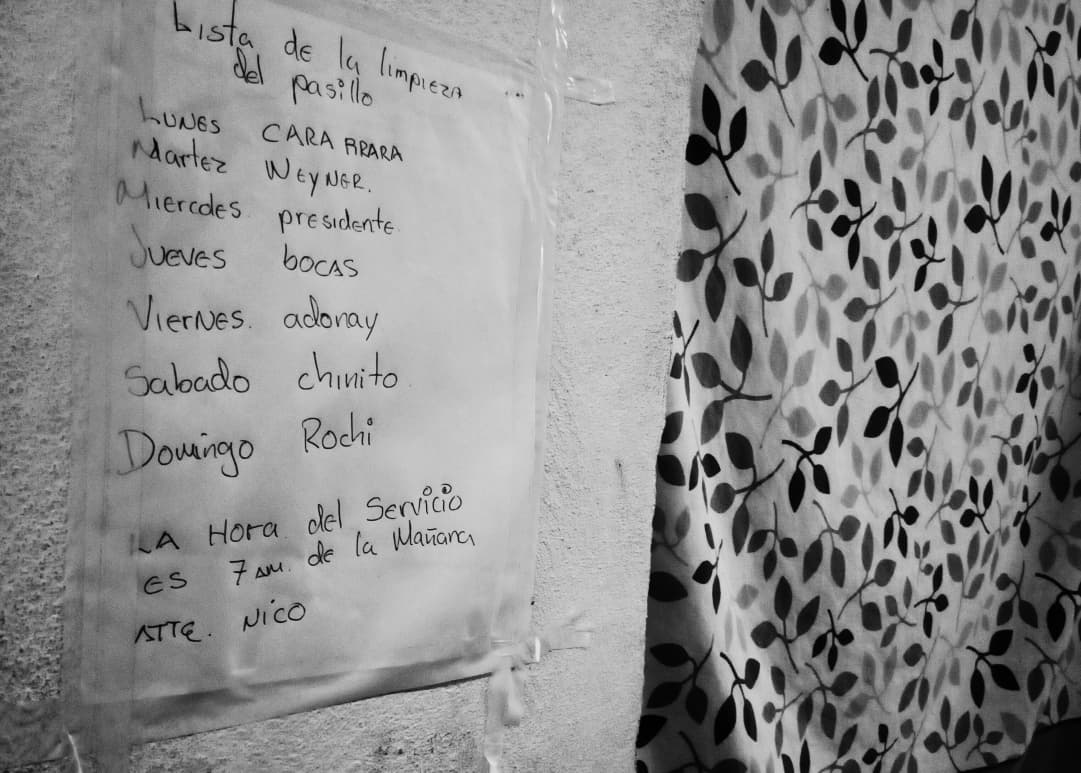 Lista de la limpieza
del pasillo
LUNES CARA ARARA
Martez WEYNER.
Miercoles presidente.
Jueves bocas
Viernes. adonay
Sabado chinito.
Domingo Rochi
LA Hora del Servicio
ES 7 am. de la Mañana
ATTE. NICO